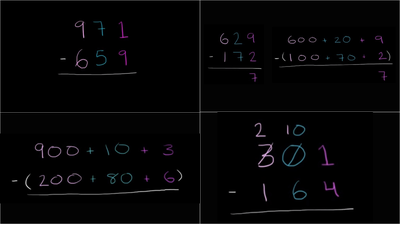 971
- 659
629
- 172
7
600 + 20 + 9
-(100 + 70 + 2)
7
900 + 10 + 3
- (200 + 80 + 6)
2 10
301
- 164